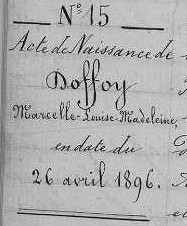 Nº 15
Acte de Naissance de
Doffoy
Marcelle-Louise-Madeleine,
en date du
26 avril 1896.